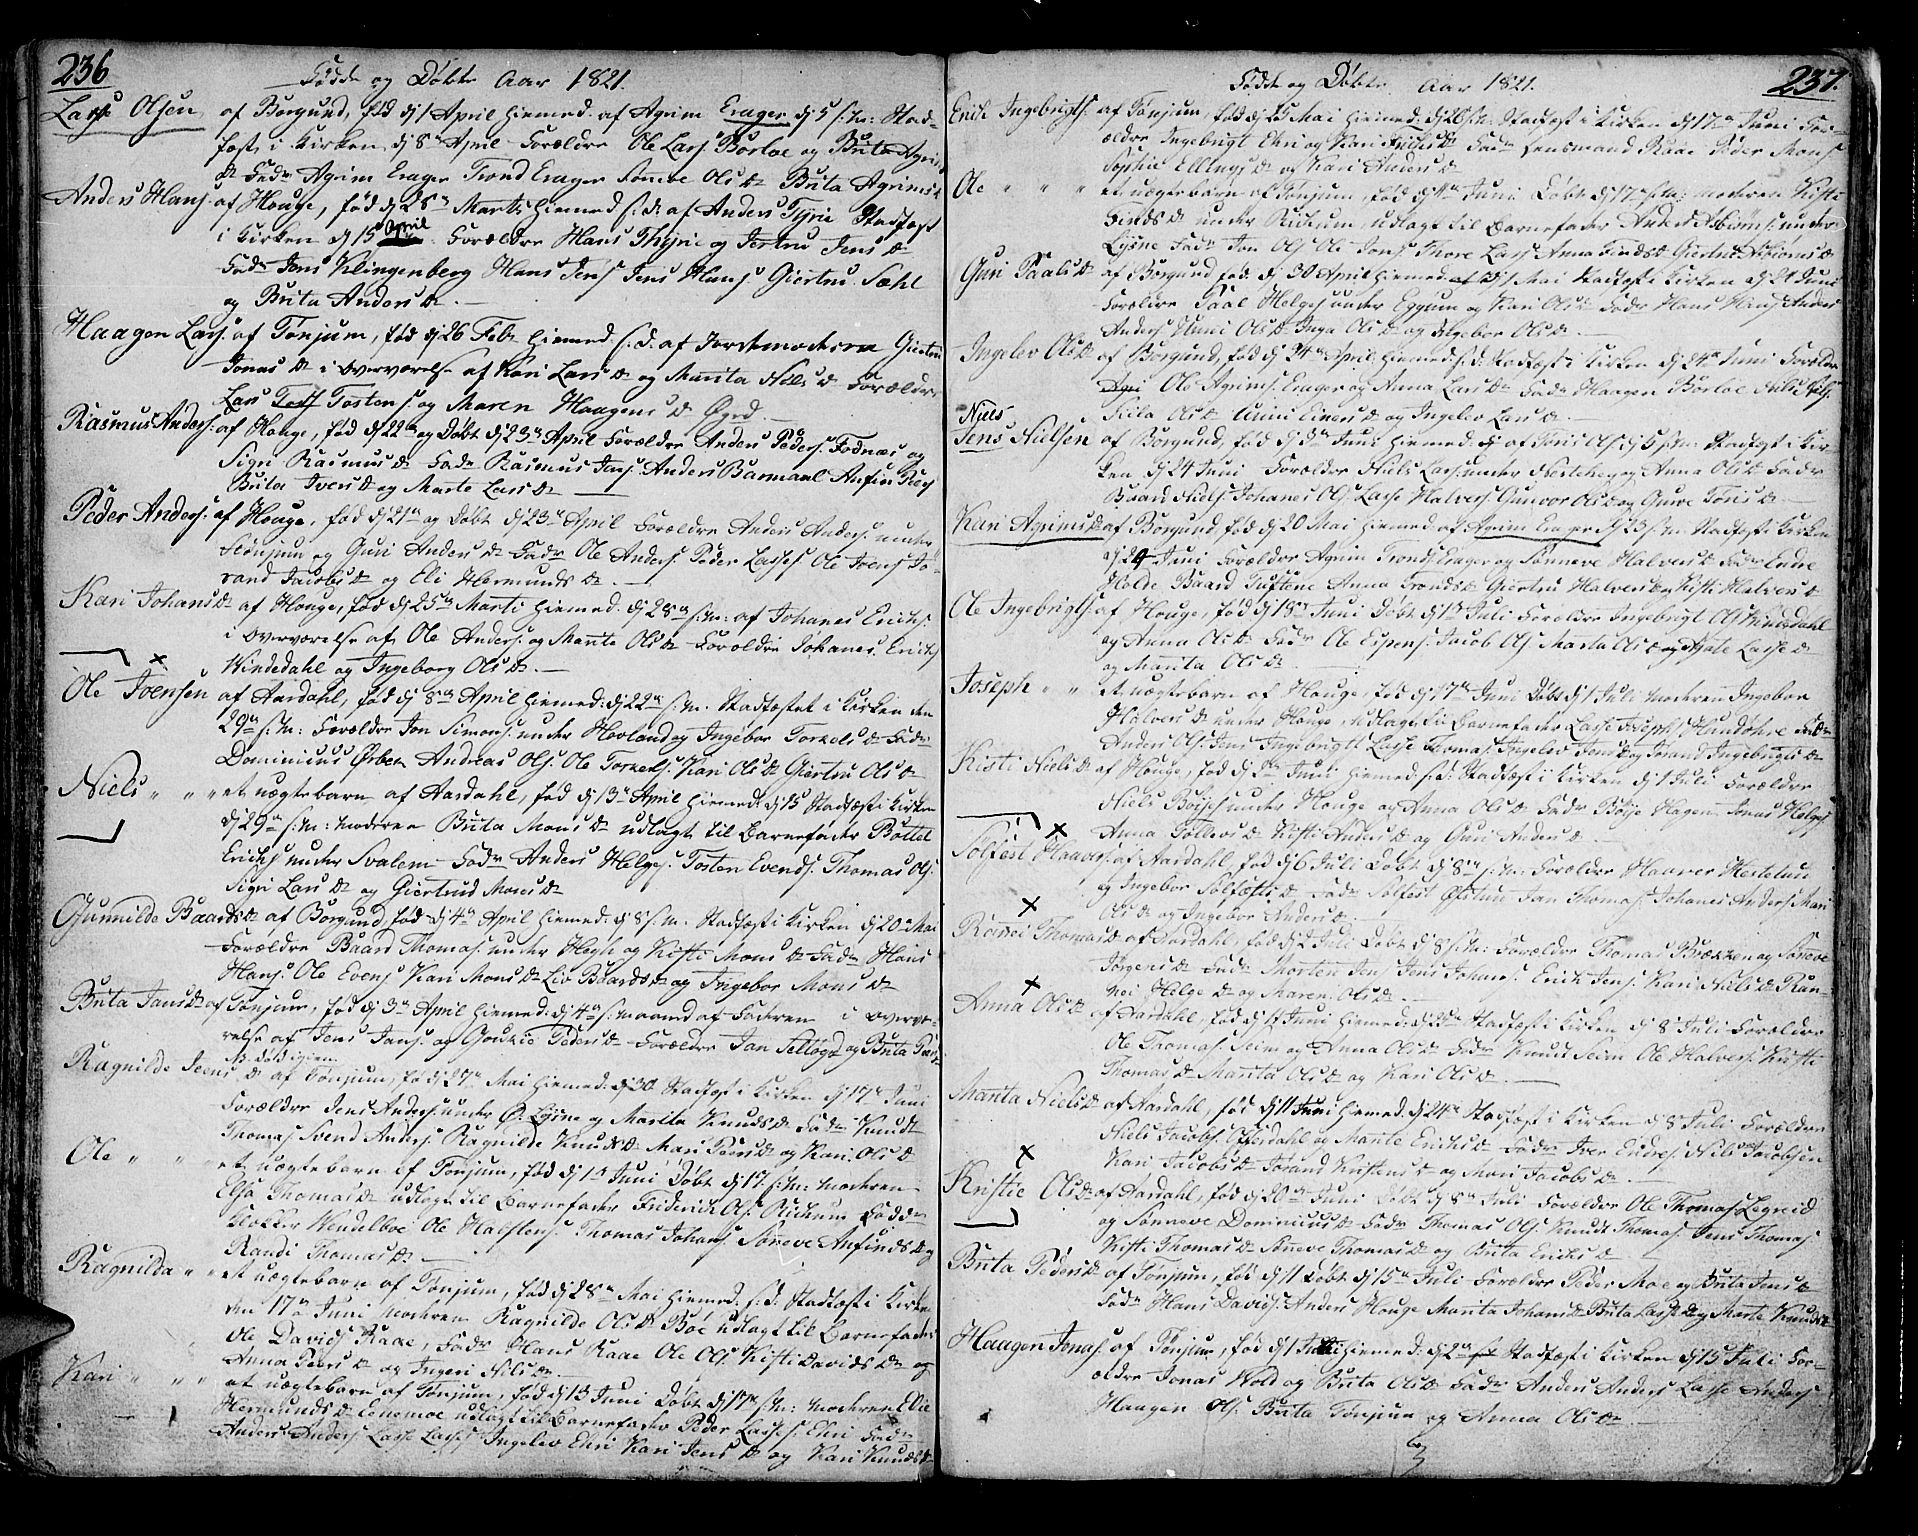 236
Fødde og Døbte Aar 1821.
Lasse Olsen af Borgund, fød dj 1 April hiemed. af Agrim Erager dj 5 s.m: Stad-
fæst i Kirken dj 8de April Forældre Ole Lars. Borloe og Brita Agrims
D Fadr Agrim Erager Trond Erager Sønneve Ols D Brita Agrims D
Anders Hans. af Houge, fød dj 28de Marts hiemed s.d. af Anders Tyrie Stadfæst
i Kirken dj 15 April. Forældre Hans Thyrie og Jertru Jens D
Fadr Jens Klingenberg Hans Jens. Jens Hans. Giertru Sæhl
og Brita Anders D. —
Haagen Lars. af Tønjum, fød dj 26 Feb. hiemed s.d. af Jordemoderen Giertru
Jonas D i overværelse af Kari Lars D og Marita Nils D Forældre
Lars Tostens. og Maren Haagens D Øyrd
Rasmus Anders. af Houge, fød dj 22de og Døbt dj 23de April Forældre Anders Peders. Fodnæs og
Sigri Rasmus D Fadr Rasmus Jens. Anders Anfin
Brita Ivers D og Marte Lars D
Peder Anders. af Houge, fød dj 21de og Døbt dj 23de April Forældre Anders Anders. under
og Guri Anders D Fadr Ole Anders. Peder Lasses. Ole Joens. Jo-
rand Jacobs D og Eli Hermunds D. —
Kari Johans D af Houge, fød dj 25de Marti hiemed. dj 28de s.m: af Johanes Erichs.
i overværelse af Ole Anders. og Marite Ols D Forældre Johanes Erichs.
Vindedahl og Ingeborg Ols D. —
Ole Joensen af Aardahl, fød dj 8de April hiemed: dj 22de s.m. Stadfæstet i Kirken den
29de s.m: Forældre Jon Simons. under Hovland og Ingebor Torkels D Fadr
Dominicus Andreas Ols. Ole Torkels. Kari Ols D Giertru Ols D
Niels " " " et uægtebarn af Aardahl, fød dj 13de April hiemed: dj 15 Stadfæst i Kirken
dj 29de s.m: moderen Brita Mons D udlagt til Barnefader Bottel
Erichs. under Svalem Fadr Anders Helges. Tosten Evends. Thomas Ols.
Sigri Lars D og Giertrud Moses D
Gunnilde Baards D af Borgund, fød dj 4de April hiemed: dj 8 s.m. Stadfæst i Kirken dj 20de Mai
Forældre Baard Thomas. under Hegle og Kisti Mons D Fadr Hans
Hans. Ole Evens. Kari Mons D Liv Baards D og Ingebor Mons D
Brita Jans D af Tønjum, fød dj 3de April hiemed: dj 4de s. maaned af Faderen i overvæ-
relse af Jens Jans. og Peders D Forældre Jan og Brita
Ragnilde Jens D af Tønjum, fød dj 27de Mai hiemed: dj 30 Stadfæst i Kirken dj 17de Juni
Forældre Jens Anders. under Ø. Lysne og Marita Knuds D Fadr Knudt
Thomas. Svend Anders. Ragnilde Knuds D Mari Peers D og Kari Ols D
Ole " " et uægtebarn af Tønjum, fød dj 1de Juni Døbt dj 17 s.m: moderen
Elsa Thomas D udlagt til Barnefader Friderich Ols. Fadr
Klokker Wendelboe Ole Halstens. Thomas Johans. Sønneve Anfinds D og
Randi Thomas D. —
Ragnilda " " et uægtebarn af Tønjum, fød dj 28de Mai hiemed. s.d. Stadfæst i Kirken
den 17de Juni moderen Ragnilde Ols D Bøe udlagt til Barnefader
Ole Davids. Raae, Fadr Hans Raae Ole Ols. Kisti Davids D og
Anna Peers D og Ingeri Nils D
Kari " " " et uægtebarn af Tønjum, fød dj 13 Juni Døbt dj 17de s.m: moderen Elie
Hermunds D udlagt til Barnefader Peder Lasses. Ehri Fadr
Anders Anders. Lasse Lasses. Ingelev Ehri Kari Jens D og Kari Knuds D
237.
Fødde og Døbte Aar 1821.
Erich Ingebrigts. af Tønjum, fød dj 25 Mai hiemed: dj 26 s.m: Stadfæst i Kirken dj 17de Juni For-
ældre Ingebrigt Ehri og Kari Fadr Lensmand Raae Peder Mons.
Sophie Ellings D og Kari Anders D
Ole " " " et uægtebarn af Tønjum, fød dj Juni Døbt dj 17de s.m: moderen Kisti
D under udlagt til Barnefader Anders under
Lysne Fadr Jon Ols. Ole Jons. Thore Lars. Anna D Giertru D
Guri Paals D af Borgund, fød dj 30 April hiemed Mai Stadfæst i Kirken dj 24 Juni
Forældre Paal Helges. under Eggum og Kari Ols D Fadr Hans Hans. Anders
Anders. Unni Ols D Inga Ols D og Ingebor Ols D. —
Ingelev Ols D af Borgund, fød dj 24de April hiemed: s.d. Stadfæst i Kirken dj 24de Juni Forældre
Ole Agrims. Erager og Anna Lars D Fadr Haagen Borloe Nils
Ols D Unni Einers D og Ingelev Lars D. —
Niels
Jens Nielsen af Borgund, fød dj Juni hiemed af Tøris Ols. dj 5 s.m: Stadfæst i Kir-
ken dj 24 Juni Forældre Niels Lars. under og Anna Ols D Fadr
Baard Niels. Johanes Ols. Lasse Halvers. Gunvor Ols D og Gure Tøris D. —
Kari Agrims D af Borgund, fød dj 20 Mai hiemed af Agrim Erager dj 23 s.m: Stadfæst i Kirken
dj 24 Juni Forældre Agrim Tronds. Erager og Sønneve Halvers D Fadr Endre
Holde Baard Tuftene Anna Tronds D Giertru Halvers D og Kisti Halvers D
Ole Ingebrigts. af Houge, fød dj 18de Juni Døbt dj 1de Juli Forældre Ingebrigt Ols. Vindedahl
og Anna Ols D Fadr Ole Espens. Jacob Ols. Marta Ols D og Agate Lasse D
og Marita Ols D. —
Joseph " " et uægtebarn af Houge, fød dj 17de Juni Døbt dj 1 Juli moderen Ingebor
Halvers D under Houge, udlagt til Barnefader Lasse Josephs. Fadr
Anders Ols. Jens Ingebrigts. Lasse Thomas. Ingelev Jens D og Jorand Ingebrigts D
Kisti Niels D af Houge, fød dj Juni hiemed s.d. Stadfæst i Kirken dj 1 Juli Forældre
Niels Bøyes. under Houge og Anna Ols D Fadr Bøye Hagen Jonas Helges.
Anna Tollevs D Kisti Anders D og Guri Anders D. —
Solfest Haavers. af Aardahl, fød dj 6 Juli Døbt dj 8de s.m: Forældre Haaver Hestetun
og Ingebor Solfests D Fadr Solfest Jan Thomas. Johanes Anders. Mari
Ols D og Ingebor Anders D. —
Rønnei Thomas D af Aardahl, fød dj 2 Juli Døbt dj 8 s.m: Forældre Thomas Brækken og Sønneve
Jørgens D Fadr Morten Jens. Jens Johans. Erich Jens. Kari Niels D Ran-
nei Helge D og Maren Ols D. —
Anna Ols D af Aardahl, fød dj Juni hiemed: dj Stadfæst i Kirken dj 8 Juli Forældre
Ole Thomas. Seim og Anna Ols D Fadr Knud Seim Ole Halvers. Kristi
Thomas D Marita Ols D og Kari Ols D. —
Marita Niels D af Aardahl, fød dj 11 Juni hiemed: dj 24de Stadfæst i Kirken dj 8 Juli Forældre
Niels Jacobs. Offerdahl og Marite Erichs D Fadr Iver Endres. Nils Jacobsen
Kari Jacobs D Jorand Kristens D og Mari Jacobs D. —
Kristie Ols D af Aardahl, fød dj 20de Juni Døbt dj 8de Juli Forældre Ole Thomas. Legreid
og Sønneve Dominicus D Fadr Thomas Ols. Knudt Thomas. Jens Thomas.
Kisti Thomas D Sønneve Thomas D og Brita Erichs D
Brita Peders D af Tønjum, fød dj 11 Døbt dj 15de Juli Forældre Peder Moe og Brita Jens D
Fadr Hans Davids. Anders Houge Marita Johans D Brita Lasse D og Marte Knuds D
Haagen Jonas. af Tønjum, fød dj 1 Juli hiemed: dj 2de Stadfæst i Kirken dj 15 Juli For-
ældre Jonas Wold og Brita Ols D Fadr Anders Anders. Lasse Anders.
Haagen Ols. Brita Tønjum og Anna Ols D. —